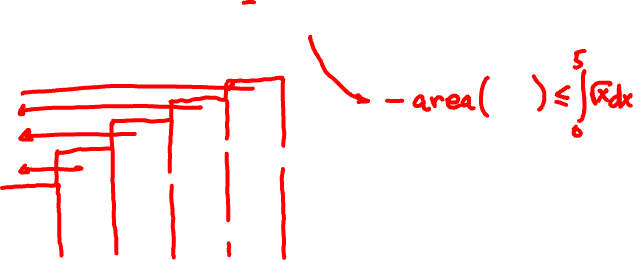 - area( ) ≤ ∫₀⁵ √x dx